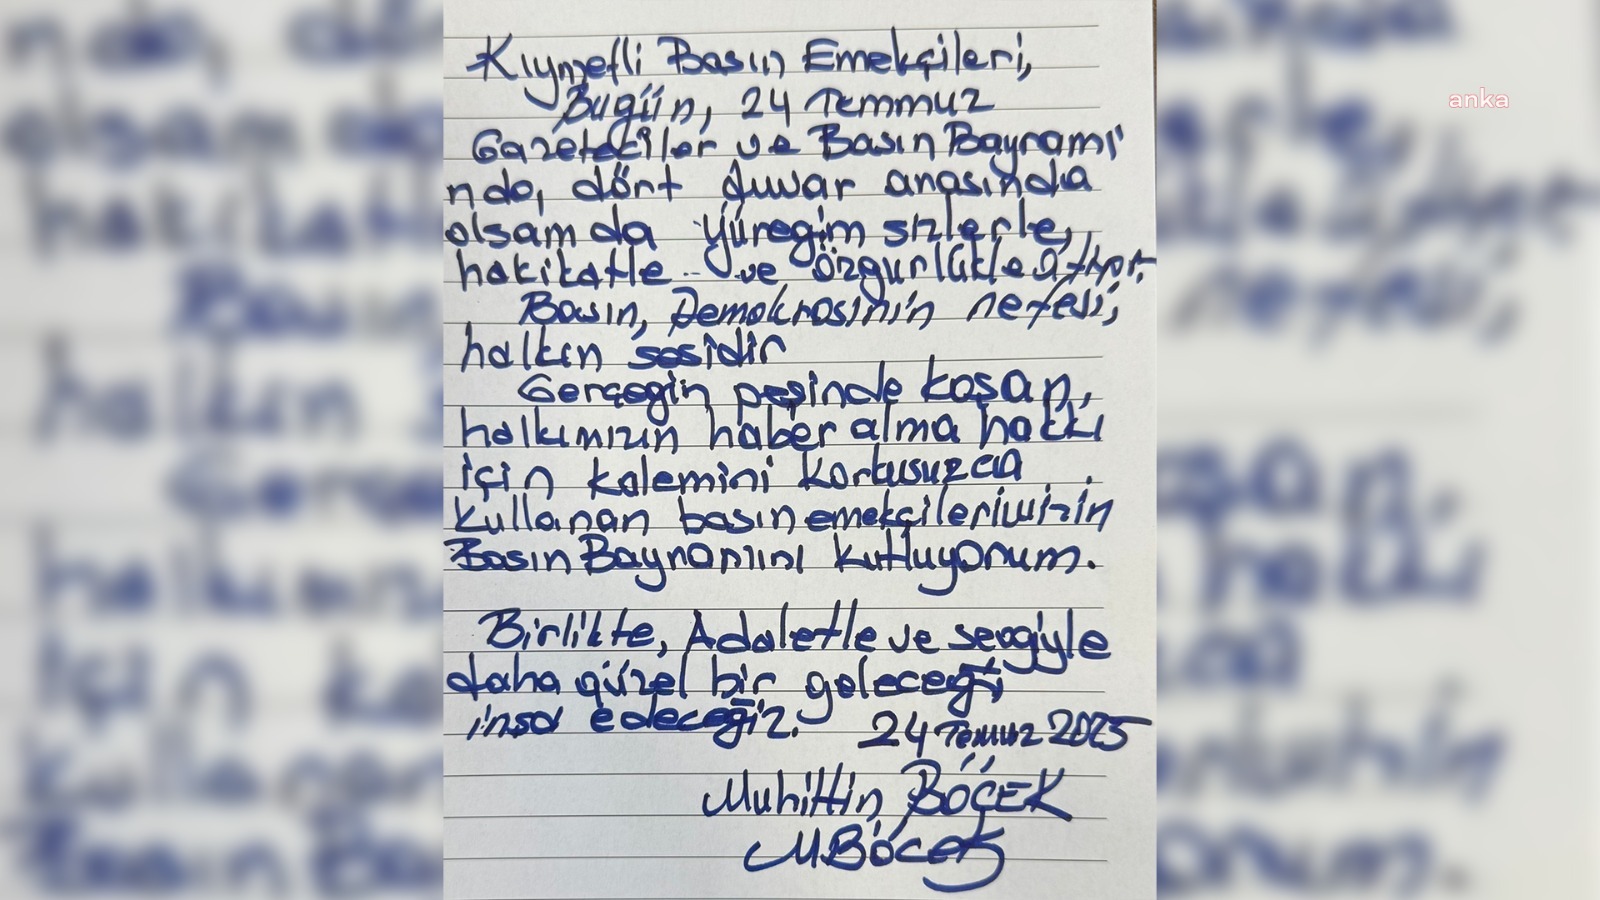 Kıymetli Basın Emekçileri,
Bugün, 24 Temmuz
anka
Gazeteciler ve Basın Bayramı'
nda, dört duvar arasında
olsam da yüreğim sizlerle,
hakikatle ve özgürlükle atıyor.
Basın, Demokrasinin nefesi,
halkın sesidir
Gerçeğin peşinde koşan,
halkımızın haber alma hakkı
için kalemini korkusuzca
kullanan basın emekçilerimizin
Basın Bayramını kutluyorum.
Birlikte, Adaletle ve sevgiyle
daha güzel bir geleceği
inşa edeceğiz. 24 Temmuz 2025
Muhittin BÖCEK
MBöcek